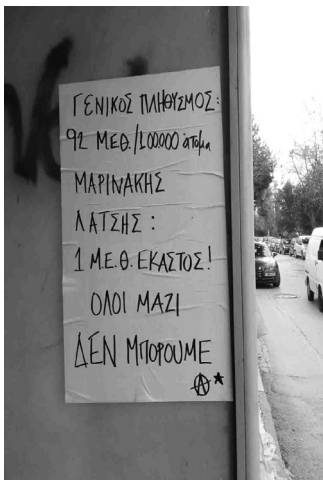 ΓΕΝΙΚΟΣ ΠΛΗΘΥΣΜΟΣ:
92 ΜΕΘ./100.000 άτομα
ΜΑΡΙΝΑΚΗΣ
ΛΑΤΣΗΣ:
1 Μ.Ε.Θ. ΕΚΑΣΤΟΣ!
ΟΛΟΙ ΜΑΖΙ
ΔΕΝ ΜΠΟΡΟΥΜΕ